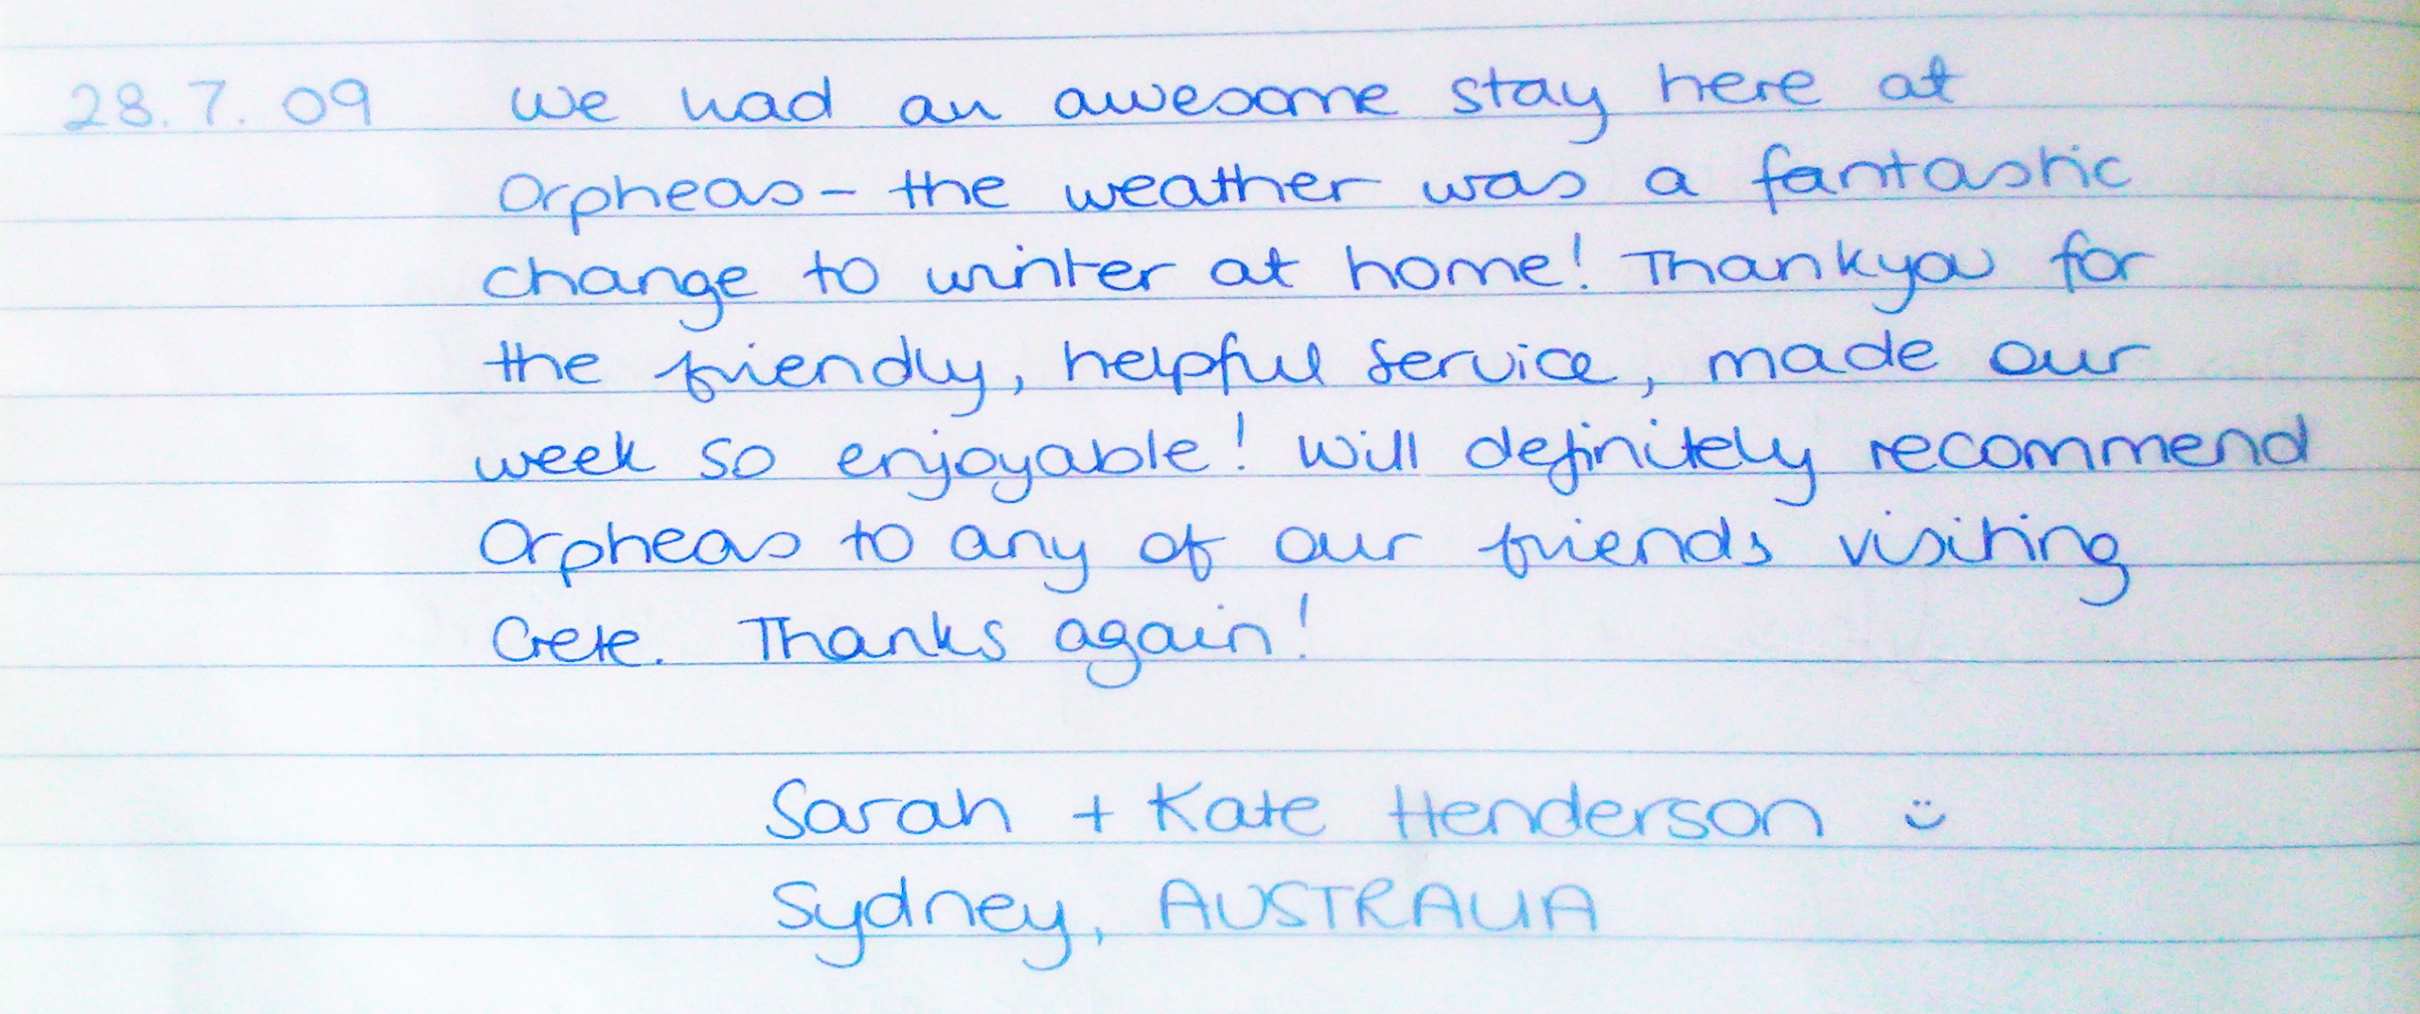 28.7.09 We had an awesome stay here at
Orpheas - the weather was a fantastic
change to winter at home! Thankyou for
the friendly, helpful service, made our
week so enjoyable! Will definitely recommend
Orpheas to any of our friends visiting
Crete. Thanks again!
Sarah + Kate Henderson :)
Sydney, AUSTRALIA